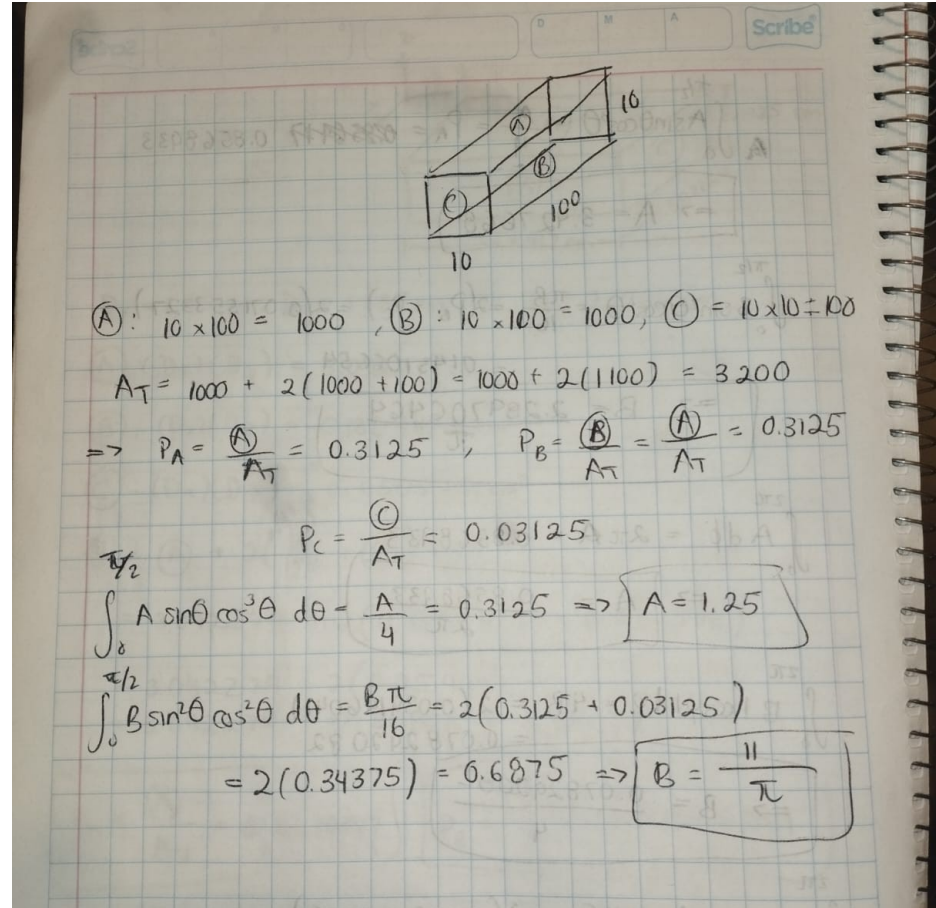 D M A Scribe
Ⓐ 10
Ⓑ
Ⓒ 100
10
Ⓐ: 10 x 100 = 1000 , Ⓑ: 10 x 100 = 1000, Ⓒ = 10 x 10 = 100
A_T = 1000 + 2(1000 + 100) = 1000 + 2(1100) = 3200
=> P_A = Ⓐ/A_T = 0.3125 , P_B = Ⓑ/A_T = Ⓐ/A_T = 0.3125
P_C = Ⓒ/A_T = 0.03125
∫_0^{π/2} A sinθ cos³θ dθ = A/4 = 0.3125 => A = 1.25
∫_0^{π/2} B sin²θ cos²θ dθ = Bπ/16 = 2(0.3125 + 0.03125)
= 2(0.34375) = 0.6875 => B = 11/π